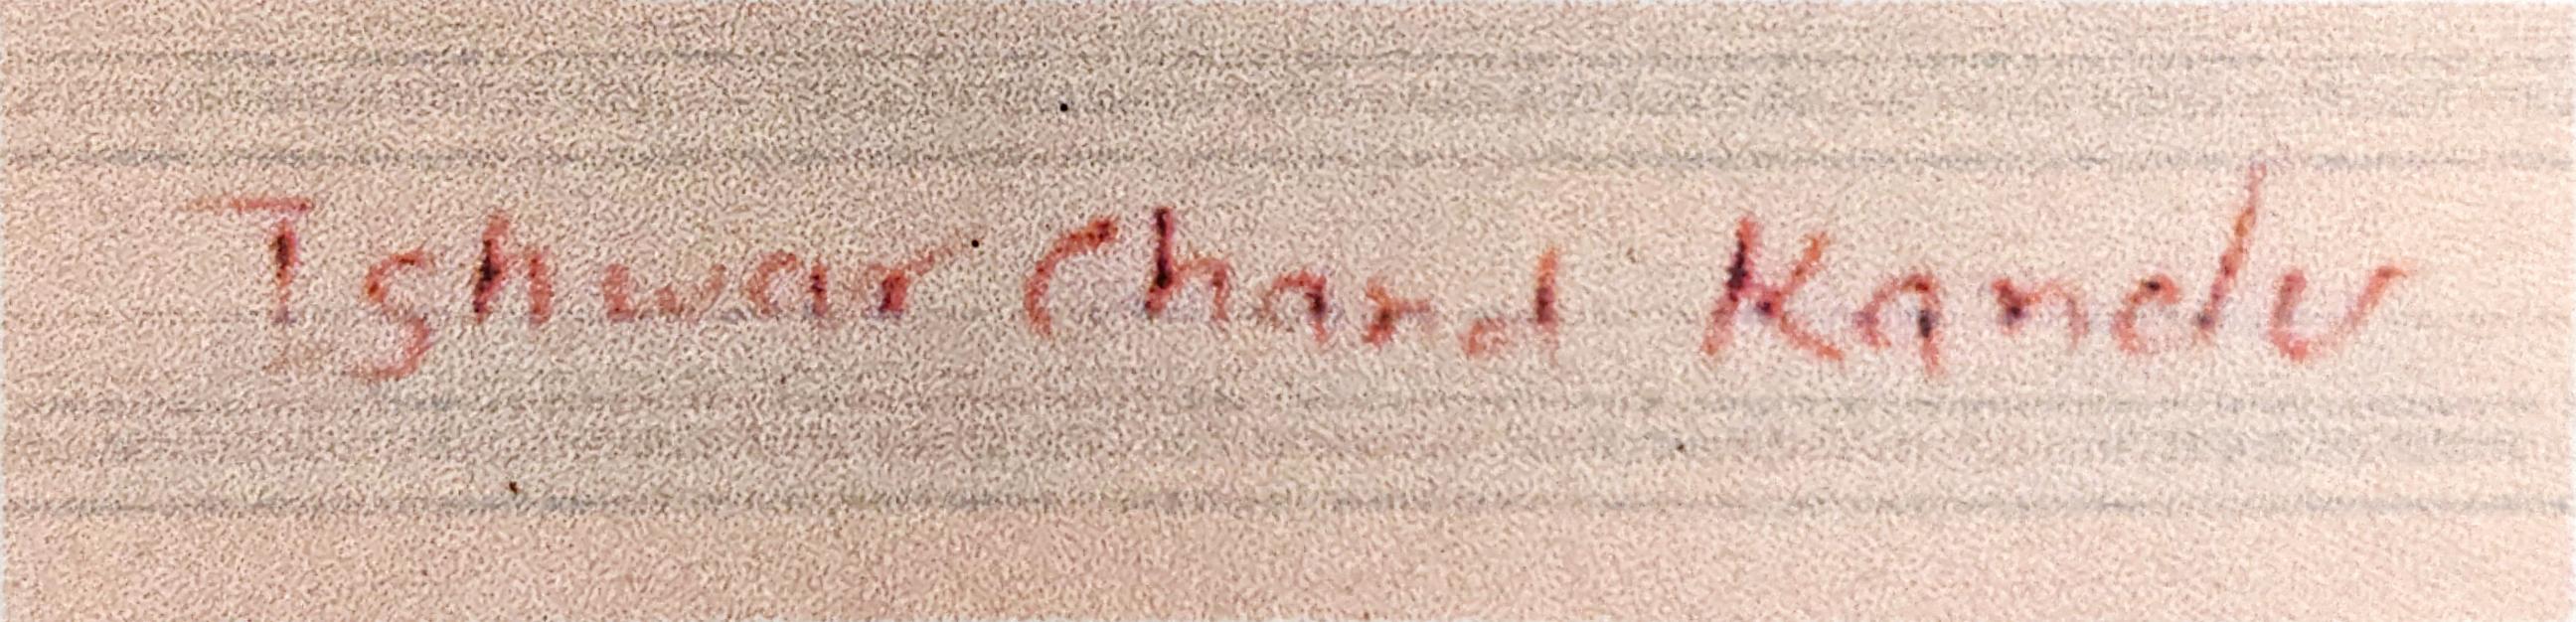 Ishwar Chand Kandu